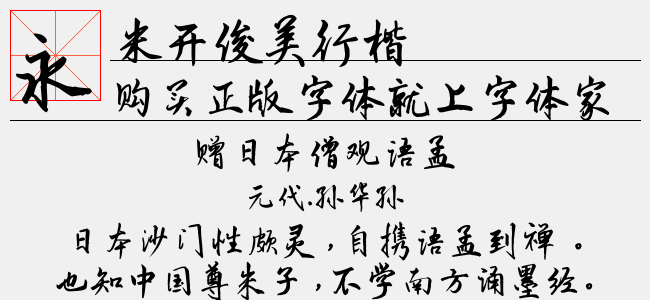 永
米开俊美行楷
购买正版字体就上字体家
赠日本僧观语孟
元代.孙华孙
日本沙门性颇灵，自携语孟到禅。
也知中国尊朱子，不学南方诵墨经。